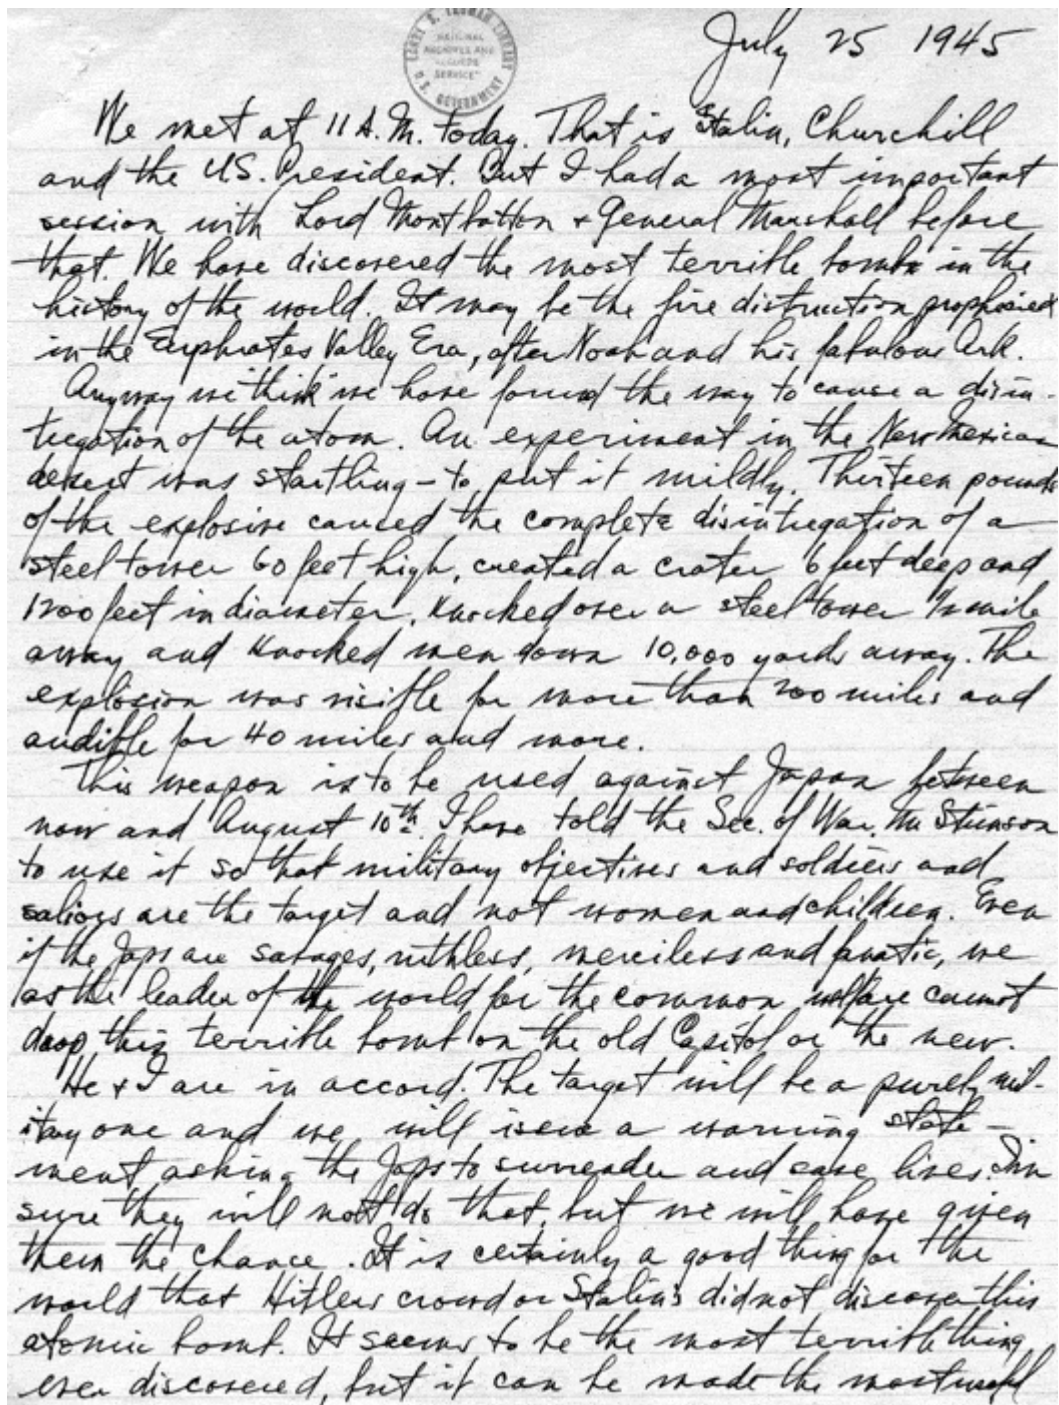 HARRY S. TRUMAN LIBRARY
"NATIONAL
ARCHIVES AND
RECORDS
SERVICE"
U.S. GOVERNMENT
July 25 1945
We met at 11 A.M. today. That is Stalin, Churchill
and the U.S. President. But I had a most important
session with Lord Mountbatten & General Marshall before
that. We have discovered the most terrible bomb in the
history of the world. It may be the fire distruction prophesied
in the Euphrates Valley Era, after Noah and his fabulous Ark.
Anyway we think we have found the way to cause a disin-
tegration of the atom. An experiment in the New Mexican
desert was startling - to put it mildly. Thirteen pounds
of the explosive caused the complete disintegration of a
steel tower 60 feet high, created a crater 6 feet deep and
1200 feet in diameter, knocked over a steel tower 1/2 mile
away and knocked men down 10,000 yards away. The
explosion was visible for more than 200 miles and
audible for 40 miles and more.
This weapon is to be used against Japan between
now and August 10th. I have told the Sec. of War, Mr Stimson
to use it so that military objectives and soldiers and
sailors are the target and not women and children. Even
if the Japs are savages, ruthless, merciless and fanatic, we
as the leader of the world for the common welfare cannot
drop this terrible bomb on the old Capitol or the new.
He & I are in accord. The target will be a purely mil-
itary one and we will issue a warning state-
ment asking the Japs to surrender and save lives. I'm
sure they will not do that, but we will have given
them the chance. It is certainly a good thing for the
world that Hitlers crowd or Stalin's did not discover this
atomic bomb. It seems to be the most terrible thing
ever discovered, but it can be made the most useful